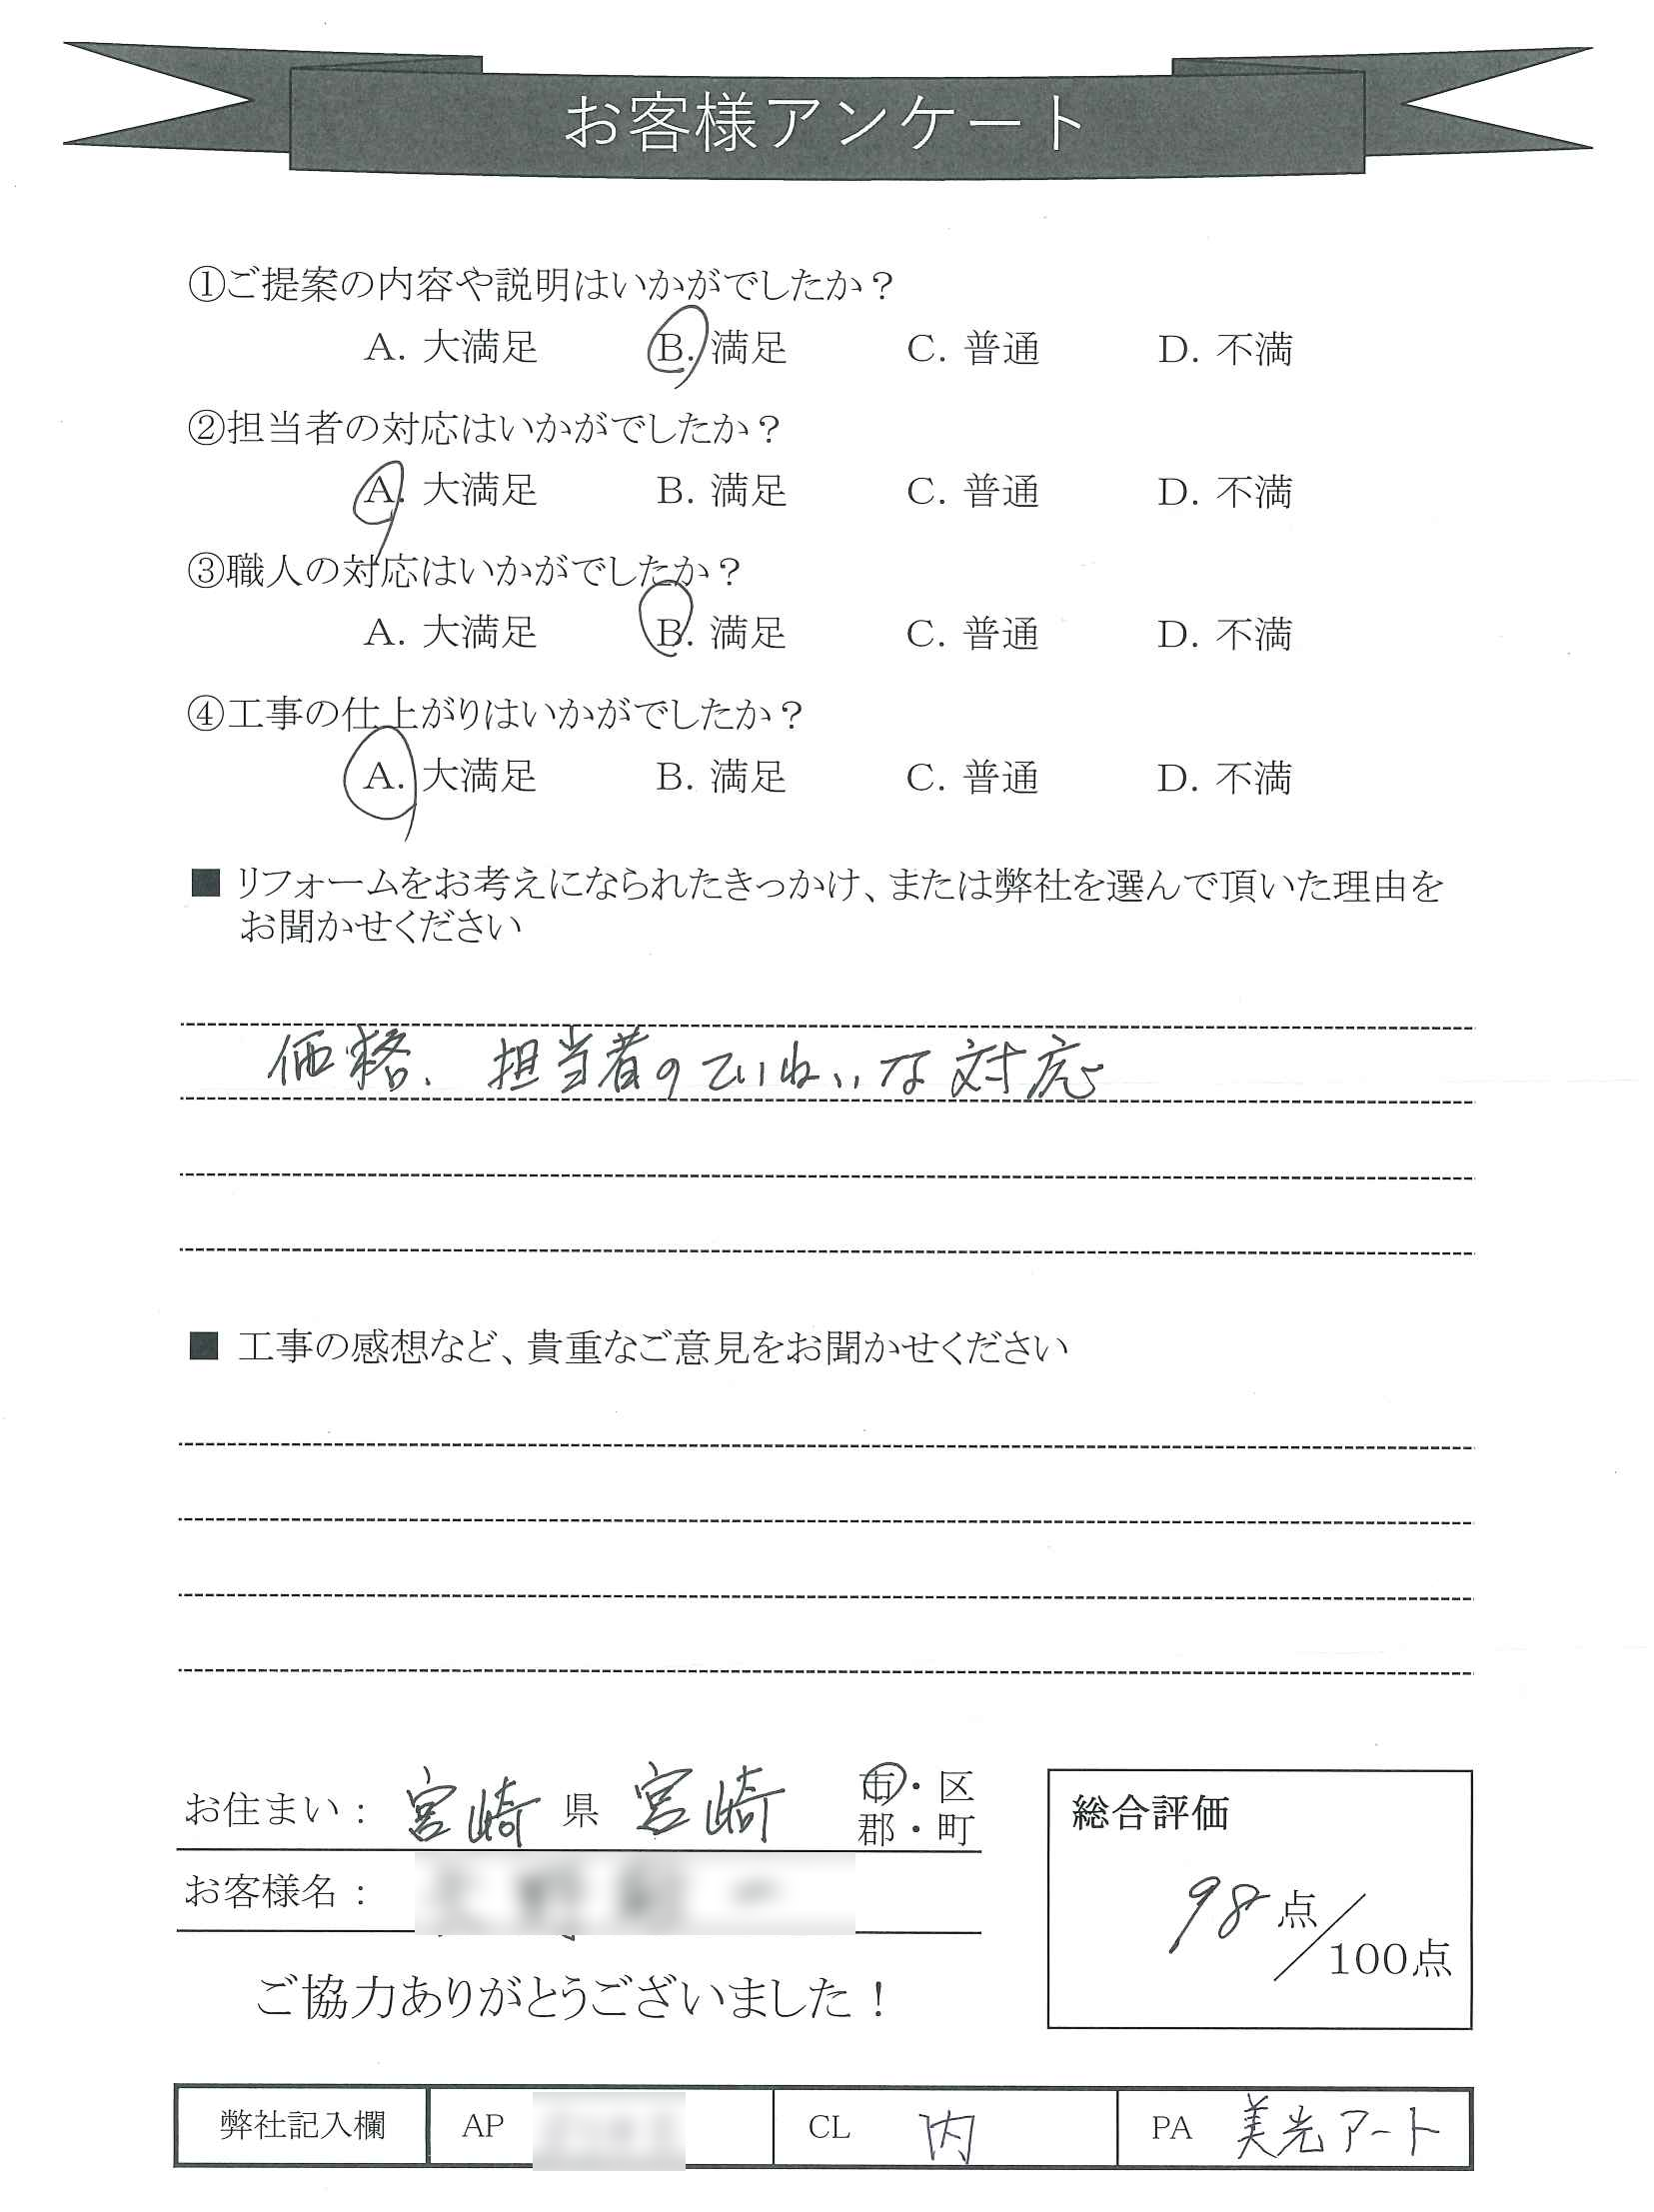 お客様アンケート
①ご提案の内容や説明はいかがでしたか？
A. 大満足 B. 満足 C. 普通 D. 不満
②担当者の対応はいかがでしたか？
A. 大満足 B. 満足 C. 普通 D. 不満
③職人の対応はいかがでしたか？
A. 大満足 B. 満足 C. 普通 D. 不満
④工事の仕上がりはいかがでしたか？
A. 大満足 B. 満足 C. 普通 D. 不満
■ リフォームをお考えになられたきっかけ、または弊社を選んで頂いた理由を
お聞かせください
価格、担当者のていねいな対応
■ 工事の感想など、貴重なご意見をお聞かせください
お住まい： 宮崎 県 宮崎 市・区
郡・町
お客様名：
ご協力ありがとうございました！
総合評価
98 点／100点
弊社記入欄 AP CL 内 PA 美光アート